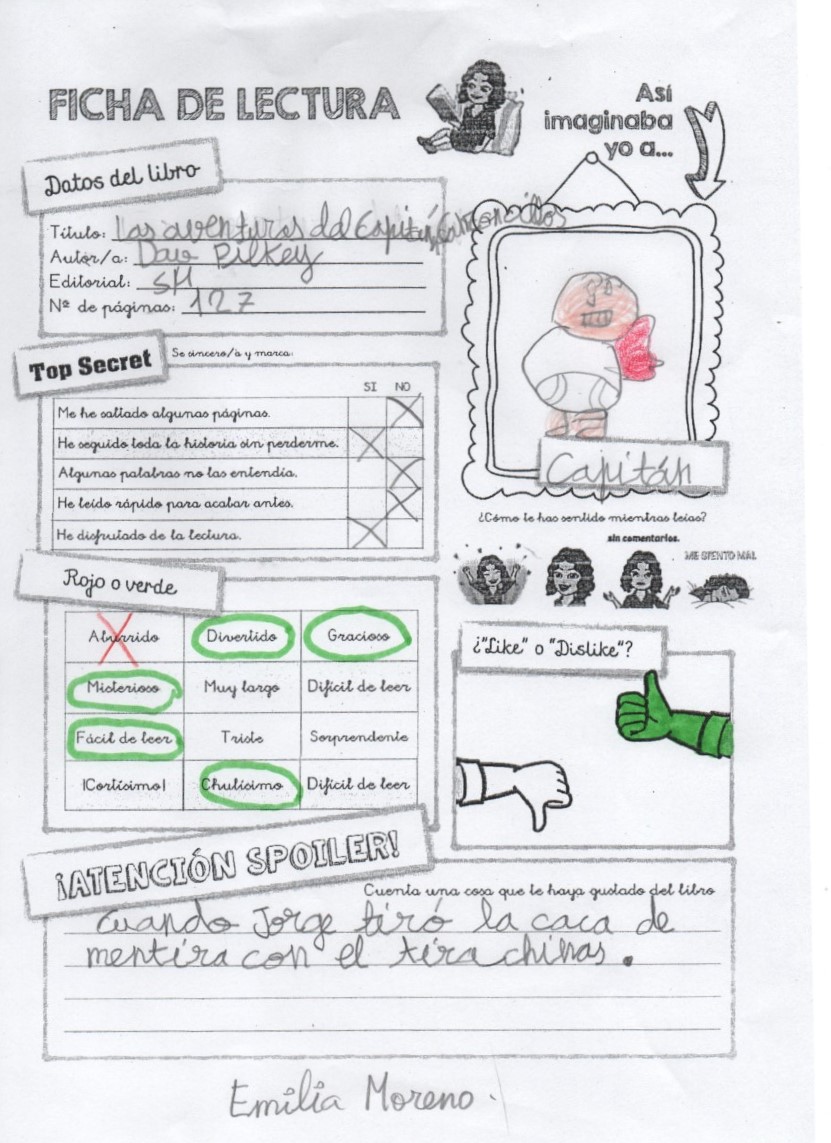 FICHA DE LECTURA
Así
imaginaba
yo a...
Datos del libro
Título: Las aventuras del Capitán Calzoncillos
Autor/a: Dav Pilkey
Editorial: SM
Nº de páginas: 127
Top Secret
Se sincero/a y marca:
SI NO
Me he saltado algunas páginas.
He seguido toda la historia sin perderme.
Algunas palabras no las entendía.
He leído rápido para acabar antes.
He disfrutado de la lectura.
Capitán
¿Cómo te has sentido mientras leías?
sin comentarios.
ME SIENTO MAL
Rojo o verde
Aburrido Divertido Gracioso
Misterioso Muy largo Difícil de leer
Fácil de leer Triste Sorprendente
¡Cortísimo! Chulísimo Difícil de leer
¿"Like" o "Dislike"?
¡ATENCIÓN SPOILER!
Cuenta una cosa que te haya gustado del libro
Cuando Jorge tiró la caca de
mentira con el tira chinas.
Emilia Moreno.